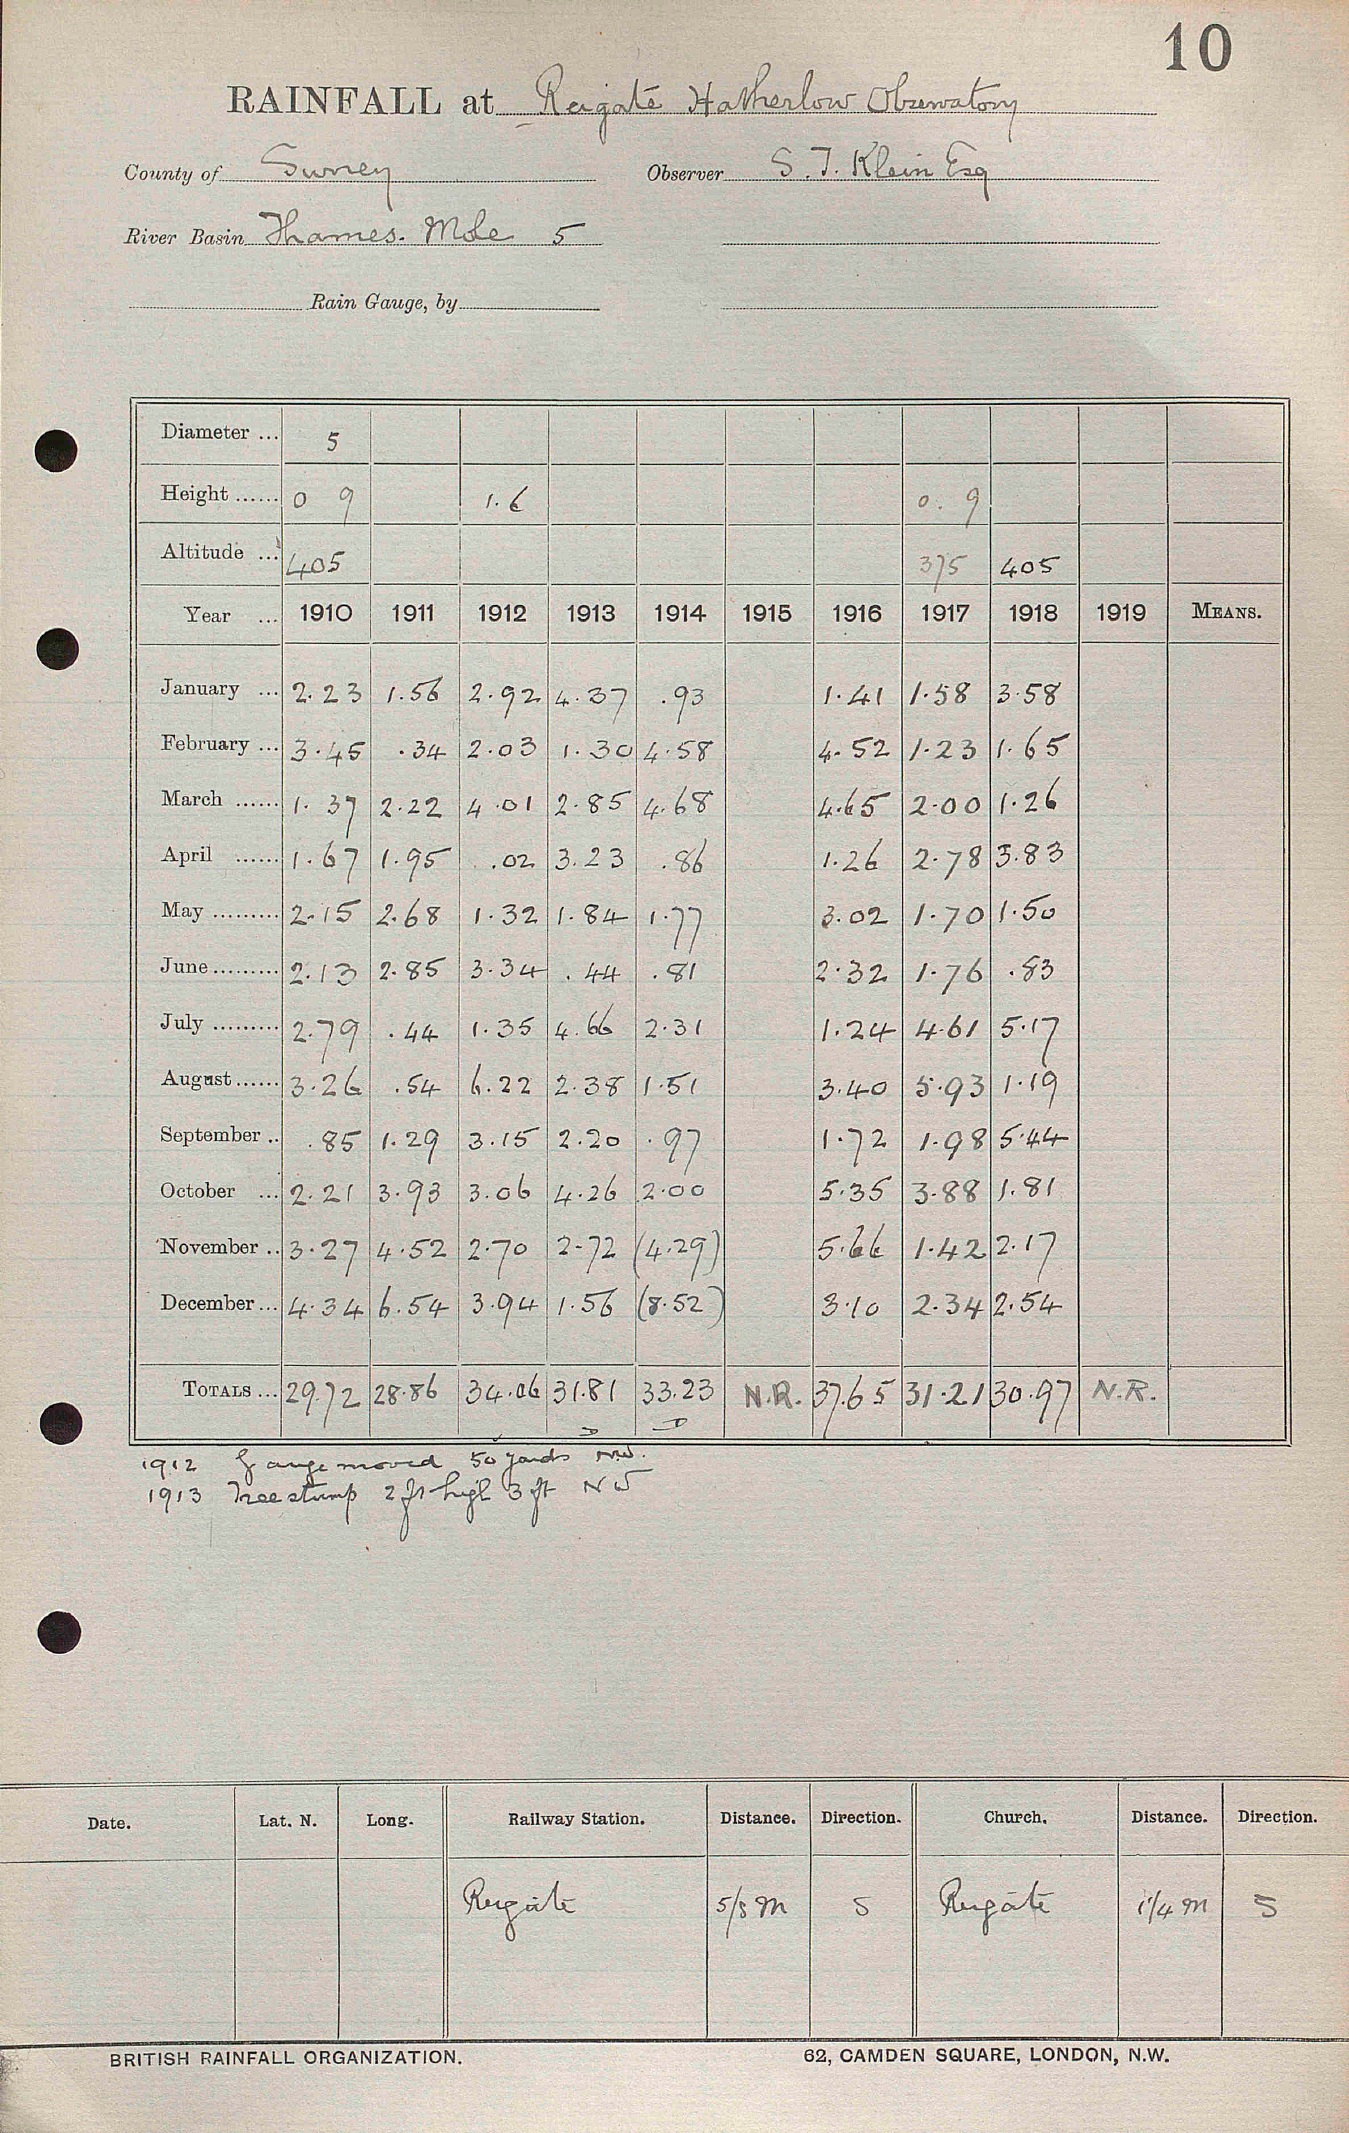 10
RAINFALL at Reigate Hatherlow Observatory
County of Surrey Observer S. T. Klein Esq
River Basin Thames. Mole 5
Rain Gauge, by
Diameter ... 5
Height ...... 0 9 1.6 0. 9
Altitude ... 405 375 405
Year ... 1910 1911 1912 1913 1914 1915 1916 1917 1918 1919 MEANS.
January ... 2.23 1.56 2.92 4.37 .93 1.41 1.58 3.58
February ... 3.45 .34 2.03 1.30 4.58 4.52 1.23 1.65
March ...... 1.37 2.22 4.01 2.85 4.68 4.65 2.00 1.26
April ...... 1.67 1.95 .02 3.23 .86 1.26 2.78 3.83
May ......... 2.15 2.68 1.32 1.84 1.77 3.02 1.70 1.50
June ......... 2.13 2.85 3.34 .44 .81 2.32 1.76 .83
July ......... 2.79 .44 1.35 4.66 2.31 1.24 4.61 5.17
August ...... 3.26 .54 6.22 2.38 1.51 3.40 5.93 1.19
September .. .85 1.29 3.15 2.20 .97 1.72 1.98 5.44
October ... 2.21 3.93 3.06 4.26 2.00 5.35 3.88 1.81
November .. 3.27 4.52 2.70 2.72 (4.29) 5.66 1.42 2.17
December ... 4.34 6.54 3.94 1.56 (8.52) 3.10 2.34 2.54
TOTALS ... 29.72 28.86 34.06 31.81 33.23 N.R. 37.65 31.21 30.97 N.R.
1912 Gauge moved 50 yards NW.
1913 Tree stump 2 ft high 3 ft NW
Date. Lat. N. Long. Railway Station. Distance. Direction. Church. Distance. Direction.
Reigate 5/8 m S Reigate 1 1/4 m S
BRITISH RAINFALL ORGANIZATION. 62, CAMDEN SQUARE, LONDON, N.W.